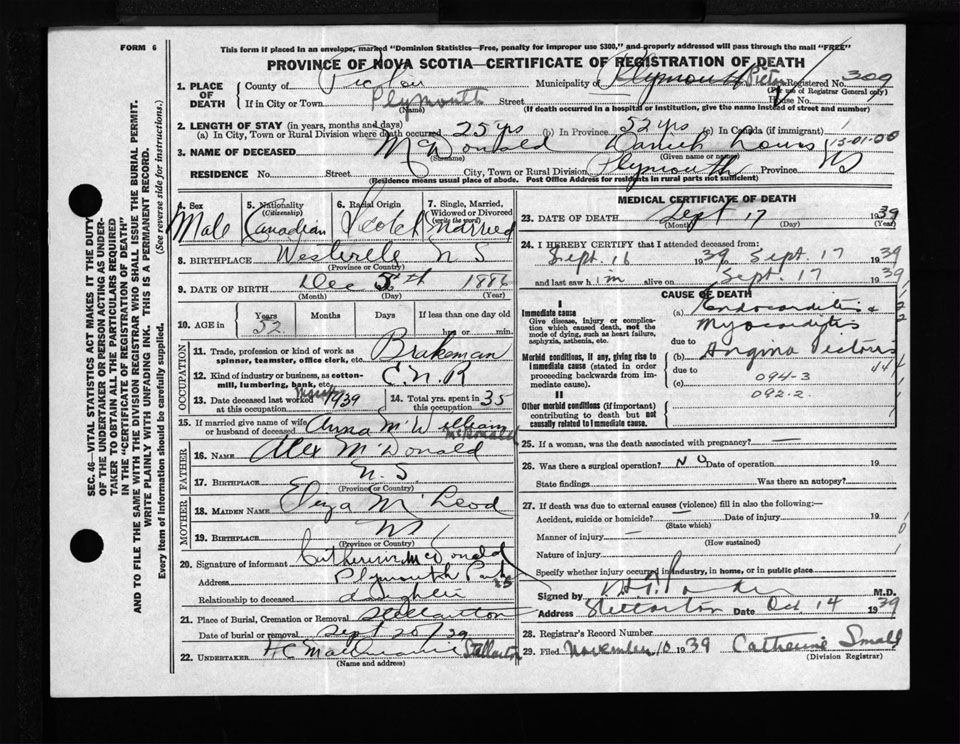 FORM 6
This form if placed in an envelope, marked "Dominion Statistics—Free, penalty for improper use $300," and properly addressed will pass through the mail "FREE"
PROVINCE OF NOVA SCOTIA—CERTIFICATE OF REGISTRATION OF DEATH
1. PLACE OF DEATH
County of Pictou Municipality of Plymouth Pictou Registered No. 309
(For use of Registrar General only)
If in City or Town Plymouth Street House No.
(Name) (If death occurred in a hospital or institution, give its name instead of street and number)
2. LENGTH OF STAY (in years, months and days)
(a) In City, Town or Rural Division where death occurred 25 yrs (b) In Province 52 yrs (c) In Canada (if immigrant)
3. NAME OF DECEASED McDonald Louis 13-01-00
(Surname) (Given name or names)
RESIDENCE No. Street City, Town or Rural Division Plymouth Province NS
(Residence means usual place of abode. Post Office Address for residents in rural parts not sufficient)
4. Sex Male
5. Nationality (Citizenship) Canadian
6. Racial Origin Scotch
7. Single, Married, Widowed or Divorced (write the word) Married
8. BIRTHPLACE Westville N S
(Province or Country)
9. DATE OF BIRTH Dec 5th 1886
(Month) (Day) (Year)
10. AGE in Years 52 Months Days If less than one day
hrs. or min.
OCCUPATION
11. Trade, profession or kind of work as spinner, teamster, office clerk, etc. Brakeman
12. Kind of industry or business, as cotton-mill, lumbering, bank, etc. C.N.R
13. Date deceased last worked at this occupation 1939
14. Total yrs. spent in this occupation 35
15. If married give name of wife or husband of deceased Anna McWilliam McDonald
FATHER
16. NAME Alex McDonald
17. BIRTHPLACE N.S.
(Province or Country)
MOTHER
18. MAIDEN NAME Eliza McLeod
19. BIRTHPLACE NS
(Province or Country)
20. Signature of informant Catherine McDonald
Address Plymouth
Relationship to deceased daughter
21. Place of Burial, Cremation or Removal Stellarton
Date of burial or removal Sept 20/39
22. UNDERTAKER Stellarton
(Name and address)
MEDICAL CERTIFICATE OF DEATH
23. DATE OF DEATH Sept 17 1939
(Month) (Day) (Year)
24. I HEREBY CERTIFY that I attended deceased from:
Sept. 16 1939 Sept. 17 1939
and last saw him alive on Sept. 17 1939
CAUSE OF DEATH
I
Immediate cause
Give disease, injury or complication which caused death, not the mode of dying, such as heart failure, asphyxia, asthenia, etc.
(a) Endocarditis & Myocarditis
due to
Morbid conditions, if any, giving rise to immediate cause (stated in order proceeding backwards from immediate cause).
(b) Angina Pectoris
due to
(c) 094-3
092-2
II
Other morbid conditions (if important) contributing to death but not causally related to immediate cause.
25. If a woman, was the death associated with pregnancy? —
26. Was there a surgical operation? NO Date of operation 19
State findings Was there an autopsy?
27. If death was due to external causes (violence) fill in also the following:
Accident, suicide or homicide? — Date of injury 19
(State which)
Manner of injury —
(How sustained)
Nature of injury
Specify whether injury occurred in industry, in home, or in public place
Signed by M.D.
Address Stellarton Date Oct 14 1939
28. Registrar's Record Number
29. Filed November 10 1939 Catherine Small
(Division Registrar)
SEC. 46—VITAL STATISTICS ACT MAKES IT THE DUTY
OF THE UNDERTAKER OR PERSON ACTING AS UNDER-
TAKER TO OBTAIN ALL THE PARTICULARS REQUIRED
IN THE "CERTIFICATE OF REGISTRATION OF DEATH"
AND TO FILE THE SAME WITH THE DIVISION REGISTRAR WHO SHALL ISSUE THE BURIAL PERMIT.
WRITE PLAINLY WITH UNFADING INK. THIS IS A PERMANENT RECORD.
Every item of information should be carefully supplied. (See reverse side for instructions.)